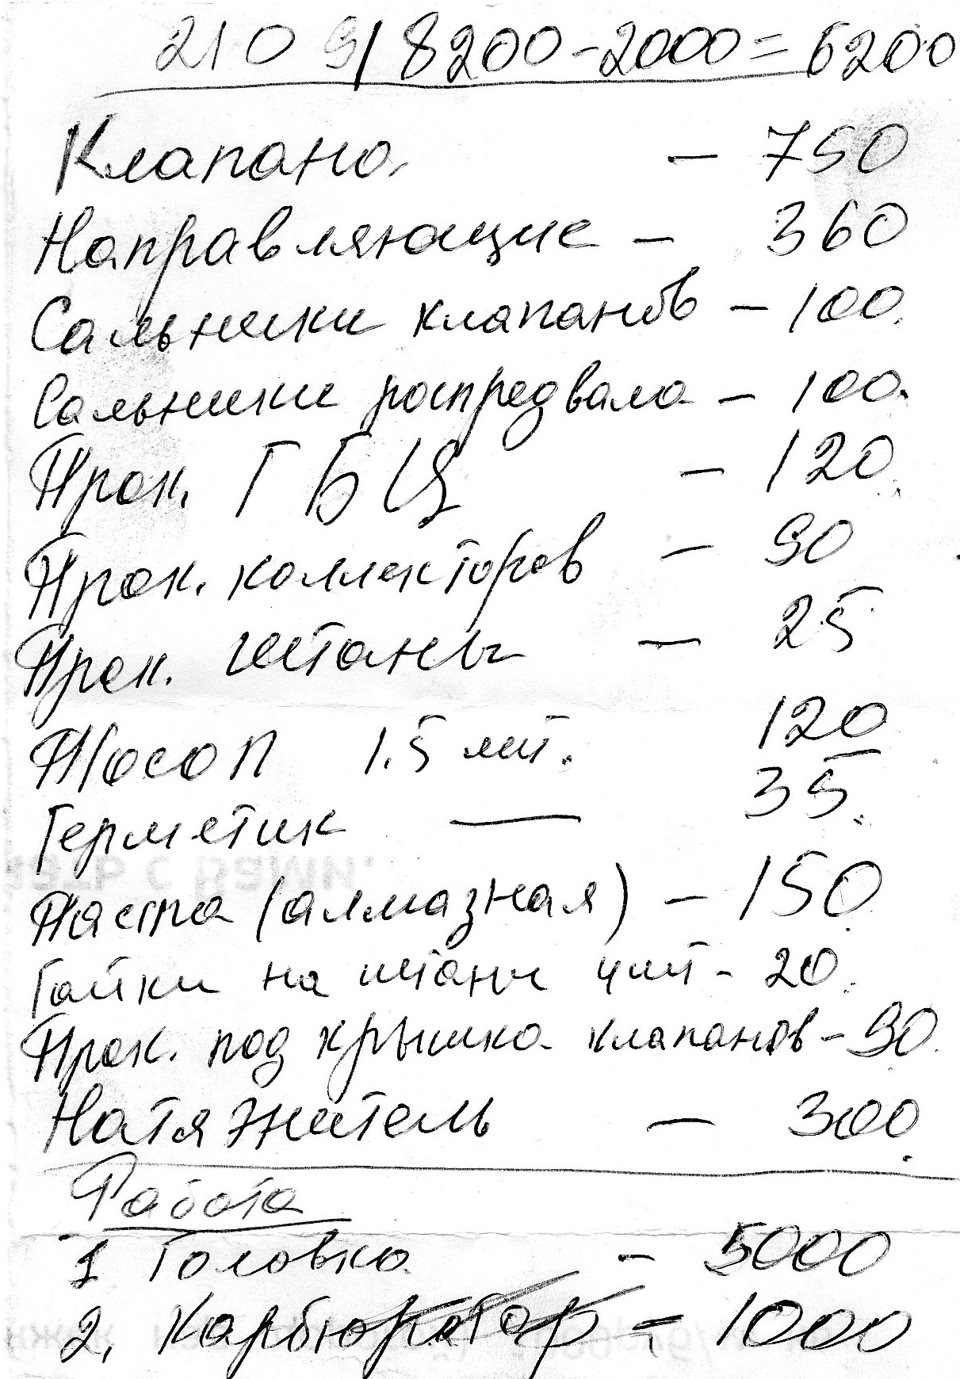 2109/ 8200-2000=6200
Клапана - 750
Направляющие - 360
Сальники клапанов - 100.
Сальники распредвала - 100.
Прок. ГБЦ - 120.
Прок. коллекторов - 90
Прок. штаны - 25
Тосол 1.5 лит. 120
Герметик — 35.
Паста (алмазная) - 150.
Гайки на штаны 4шт - 20.
Прок. под крышка клапанов - 90.
Натяжитель - 300.
Работа
1 Головка - 5000
2. Карбюратор - 1000